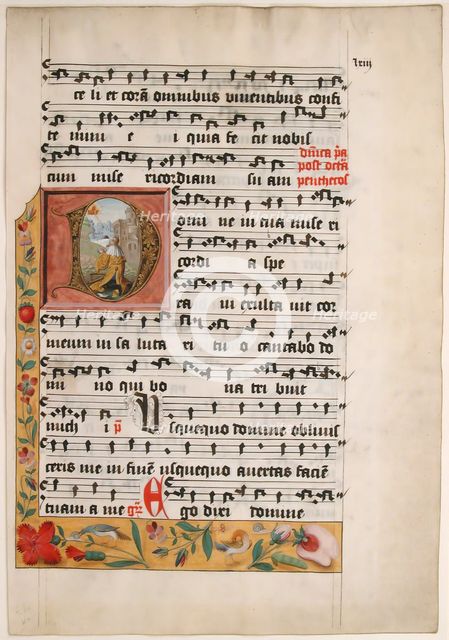 lxiii
ce li et corā omnibus viventibus confi
te mini e i quia fe cit nobis
cum mise ricordiam su am
dn̄ica pa
post octā
penthecos
D omi ne in tua mise ri
cordi a spe
ra ui exulta vit cor
meum in sa luta ri tu o cantabo do
mi no qui bo na tri buit
mich i p̄ Vsquequo domine oblivis
ceris me in finē usquequo avertas faciē
tuam a me gr̄ E go dixi domine
Heritage
Heritage
Heritage
Heritage